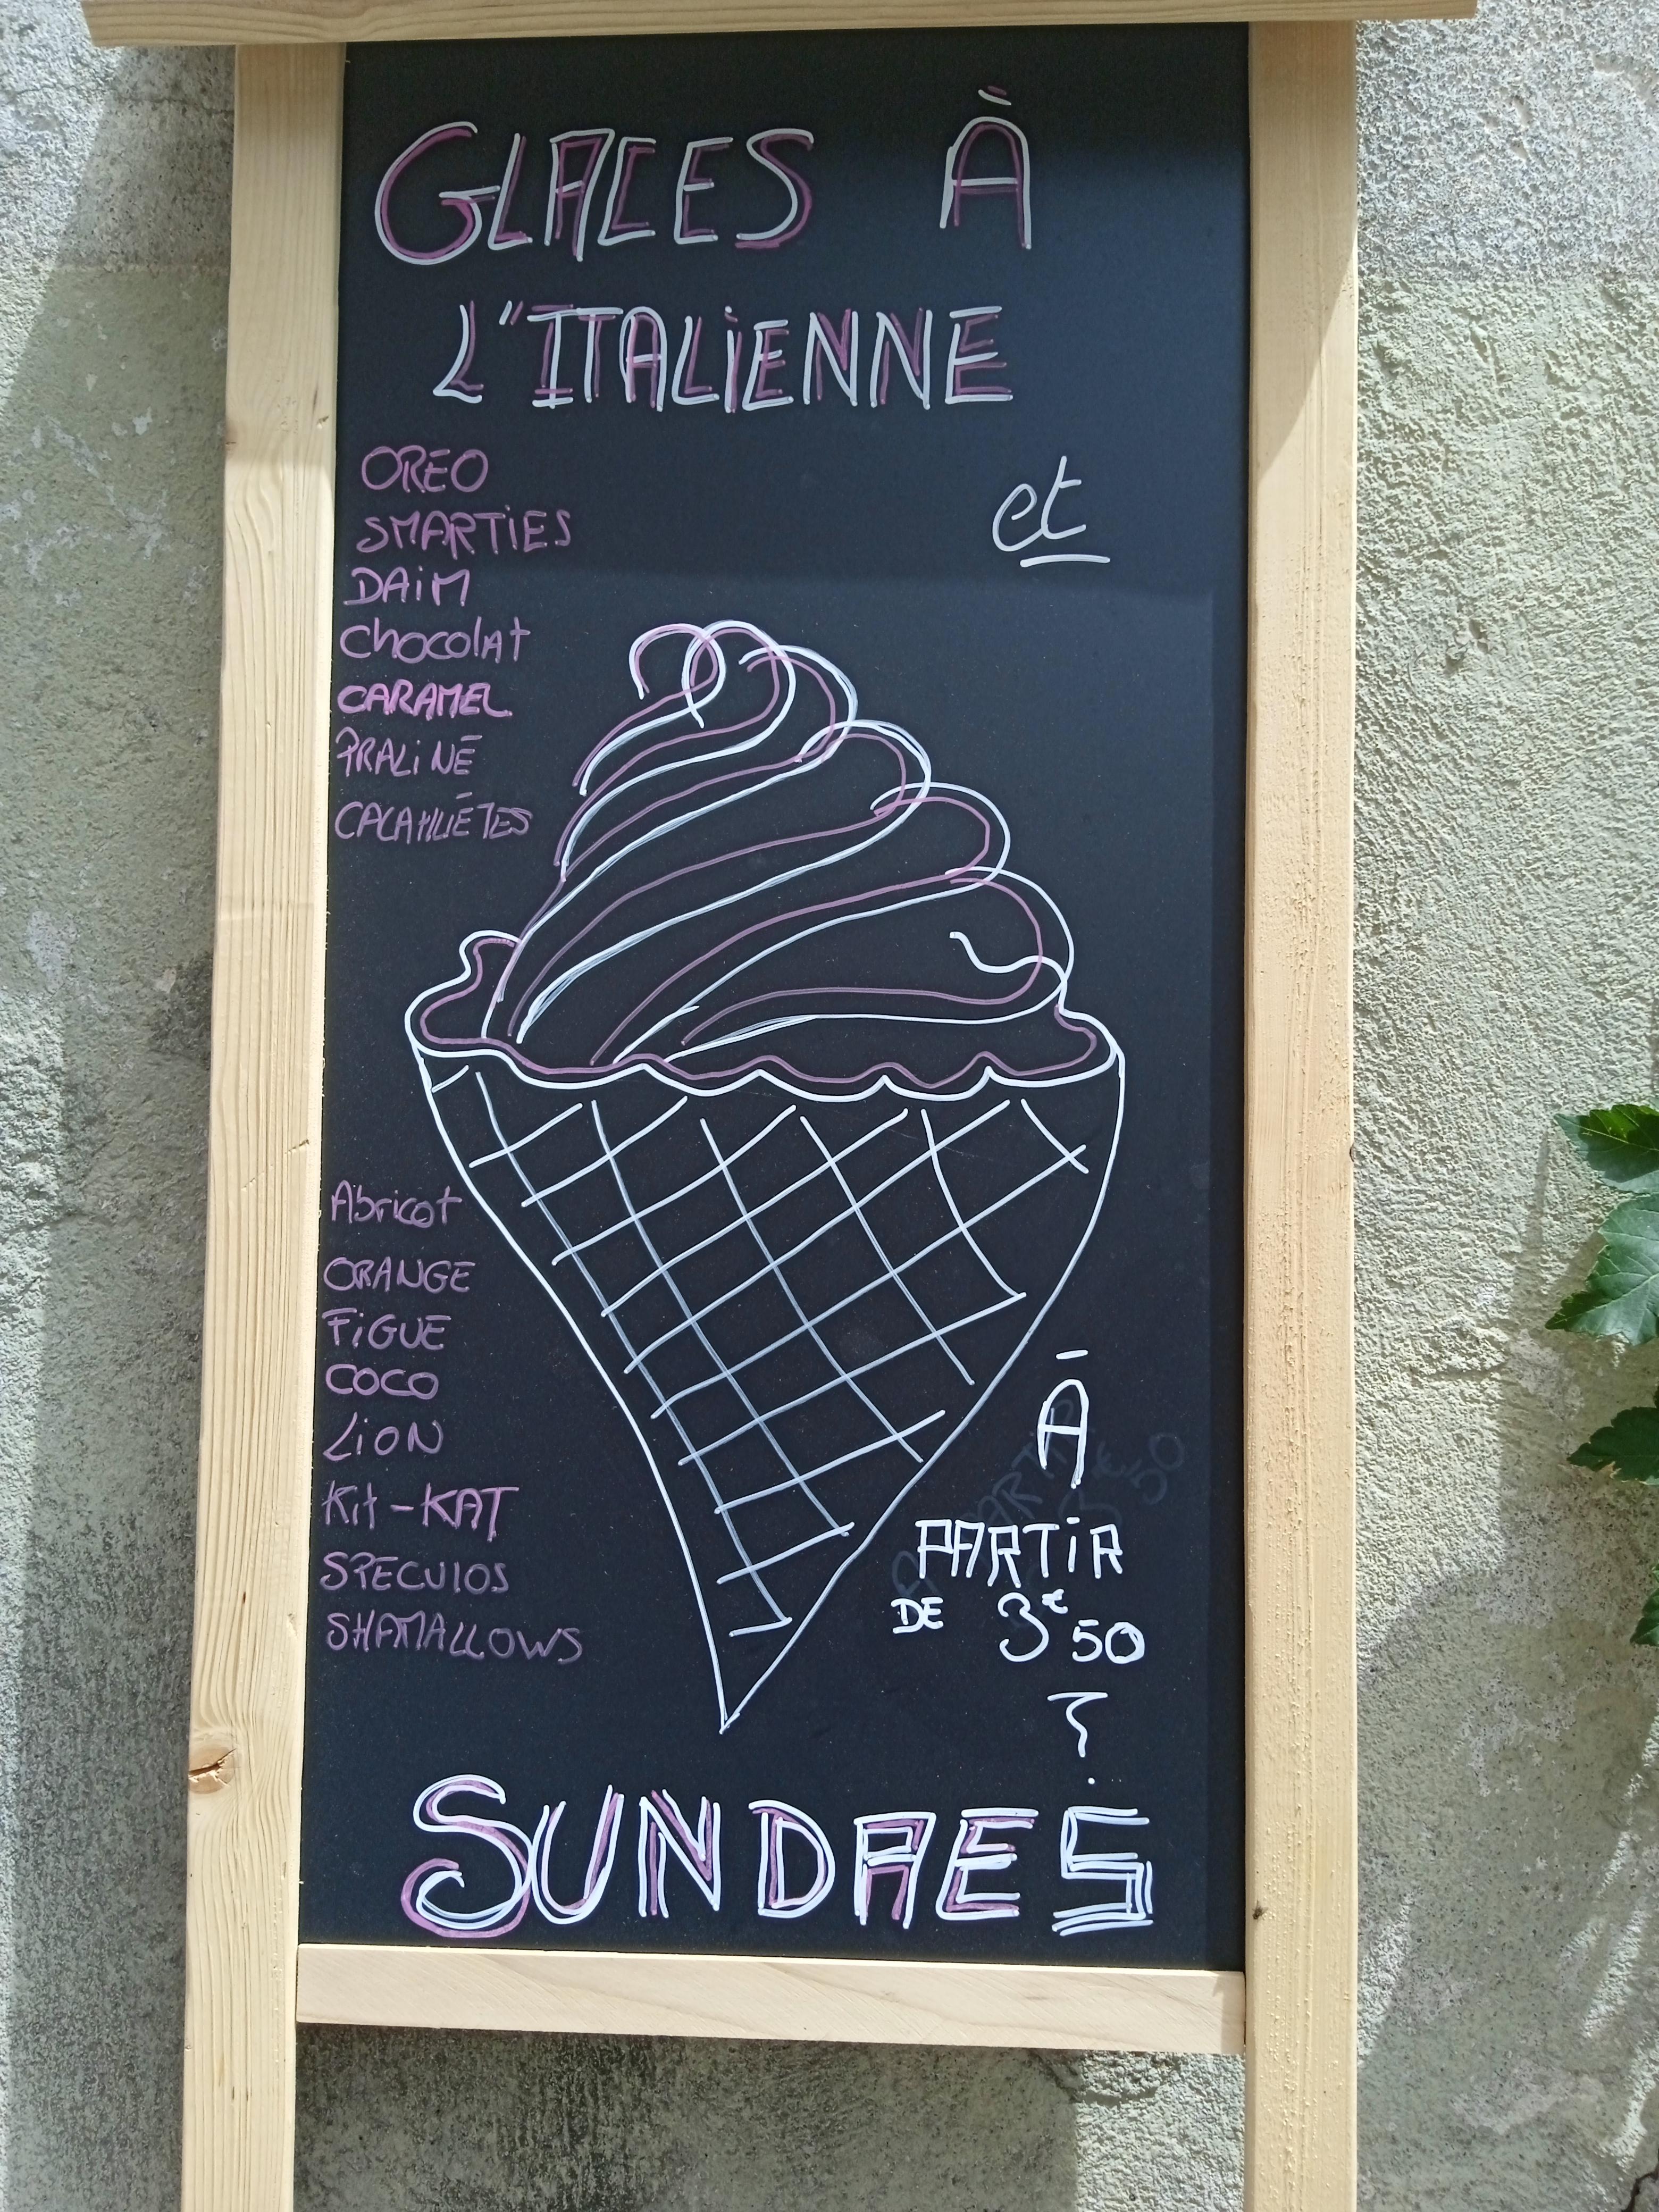 GLACES À
L'ITALIENNE
et
OREO
SMARTiES
DAiM
chocolat
CARAMEL
PRALiNÉ
CACAHUÉTES
Abricot
ORANGE
FiGUE
COCO
LiON
Kit-KAT
SPECULOS
SHAMALLOWS
À
PARTiR
DE 3€50
SUNDAES